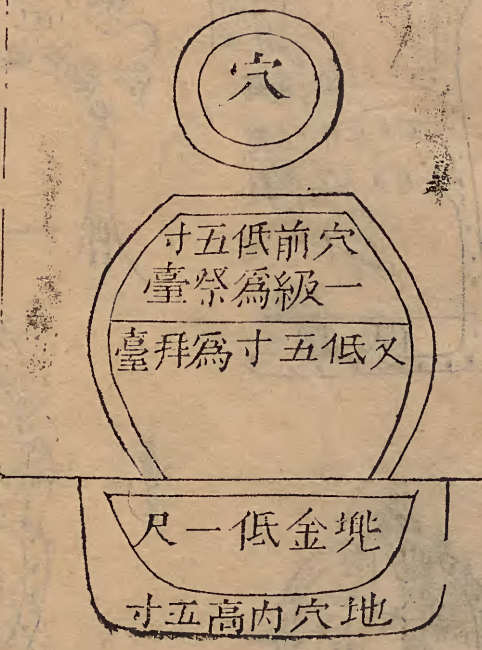 穴
穴前低五寸
一級為祭臺
又低五寸為拜臺
兠金低一尺
地穴內高五寸